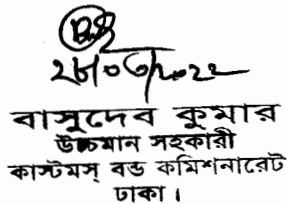 ২৮/০৩/২০২২
বাসুদেব কুমার
উচ্চমান সহকারী
কাস্টমস্ বন্ড কমিশনারেট
ঢাকা।